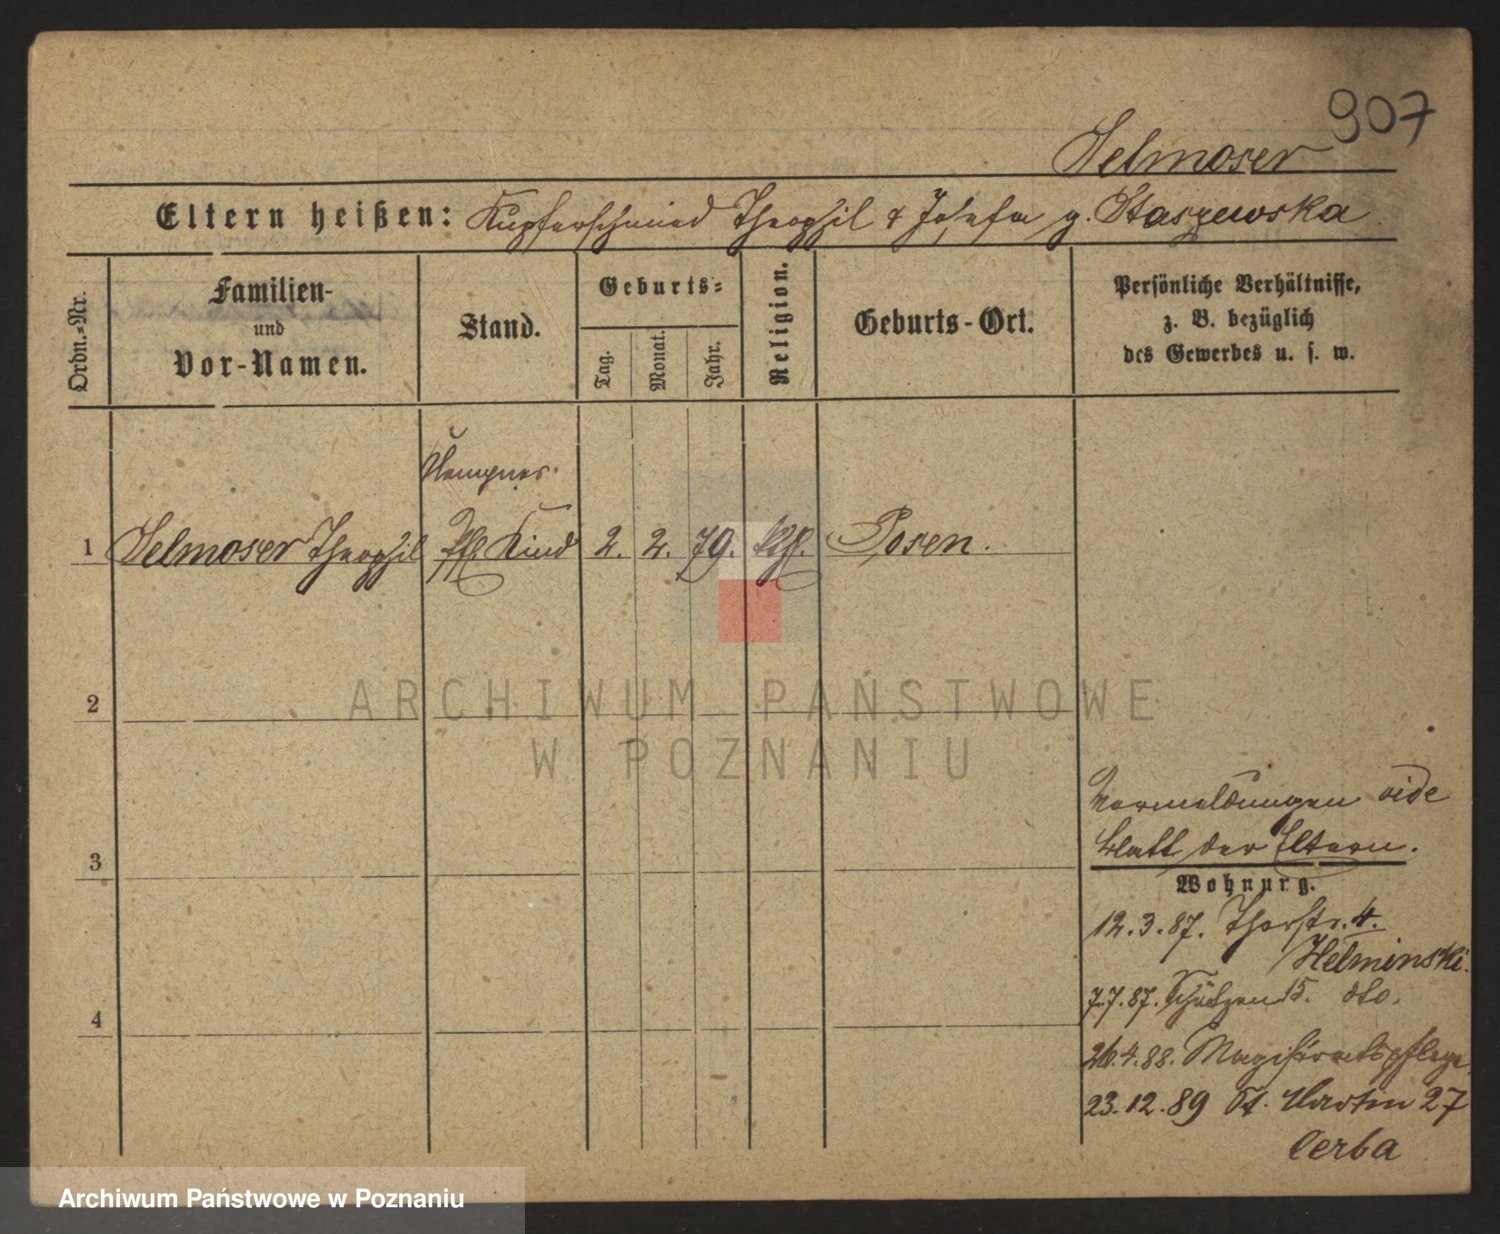 907
Selmoser
Eltern heißen: Kupferschmied Theophil & Josefa g. Staszewska
Ordn.-Nr.
Familien-
und
Vor-Namen.
Stand.
Geburts-
Tag.
Monat.
Jahr.
Religion.
Geburts-Ort.
Persönliche Verhältnisse,
z. B. bezüglich
des Gewerbes u. s. w.
1 Selmoser Theophil Kind 2. 2. 79. kth. Posen.
2
ARCHIWUM PAŃSTWOWE
W POZNANIU
Vormeldungen vide
3 Blatt der Eltern.
Wohnung.
12.3.87. Thorstr. 4.
Helminski.
7.7.87. Schützen 15. dto.
4
26.4.88. Magistratspflege
23.12.89 St. Martin 27
Cerba
Archiwum Państwowe w Poznaniu